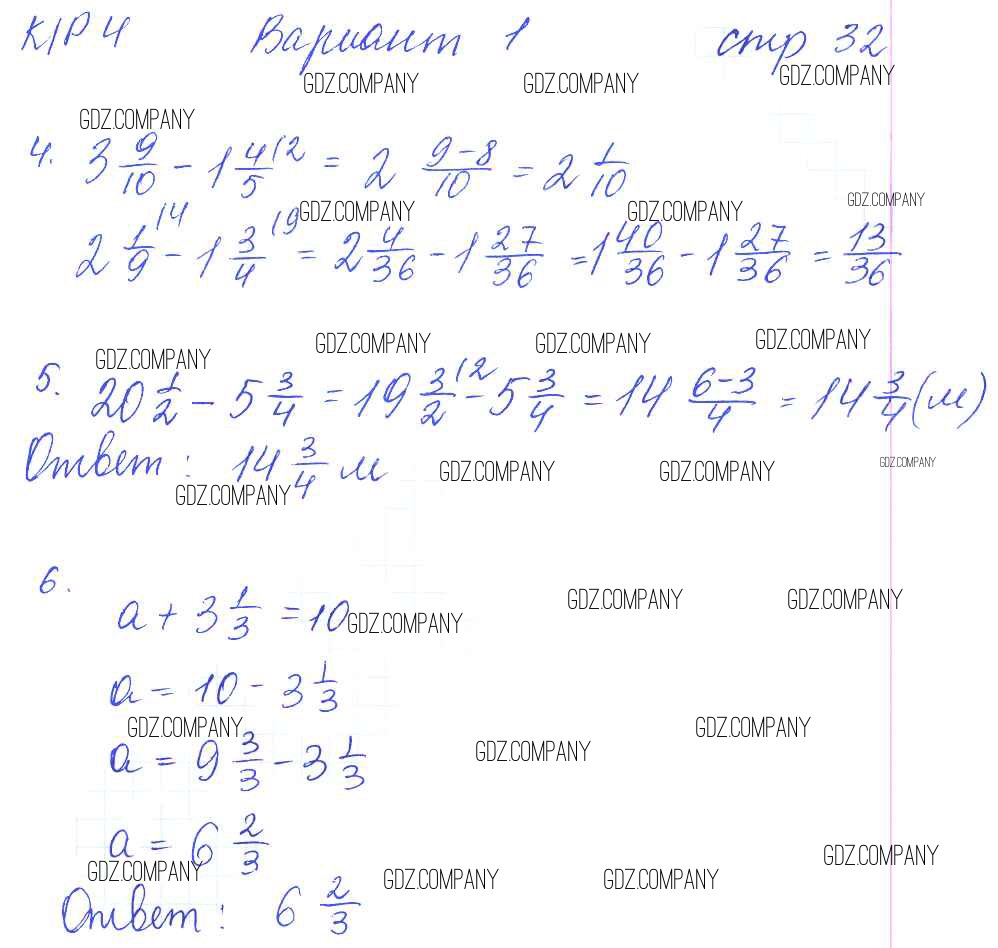 К/Р 4 Вариант 1 стр 32
GDZ.COMPANY GDZ.COMPANY GDZ.COMPANY
GDZ.COMPANY
4. 3 9/10 - 1 4/5 ^(2 = 2 (9-8)/10 = 2 1/10
GDZ.COMPANY GDZ.COMPANY GDZ.COMPANY
2 1/9 ^(4 - 1 3/4 ^(9 = 2 4/36 - 1 27/36 = 1 40/36 - 1 27/36 = 13/36
GDZ.COMPANY GDZ.COMPANY GDZ.COMPANY GDZ.COMPANY
5. 20 1/2 - 5 3/4 = 19 3/2 ^(2 - 5 3/4 = 14 (6-3)/4 = 14 3/4 (м)
Ответ: 14 3/4 м
GDZ.COMPANY GDZ.COMPANY GDZ.COMPANY GDZ.COMPANY
6.
a + 3 1/3 = 10
GDZ.COMPANY GDZ.COMPANY GDZ.COMPANY
a = 10 - 3 1/3
GDZ.COMPANY GDZ.COMPANY GDZ.COMPANY
a = 9 3/3 - 3 1/3
a = 6 2/3
GDZ.COMPANY GDZ.COMPANY GDZ.COMPANY GDZ.COMPANY
Ответ: 6 2/3